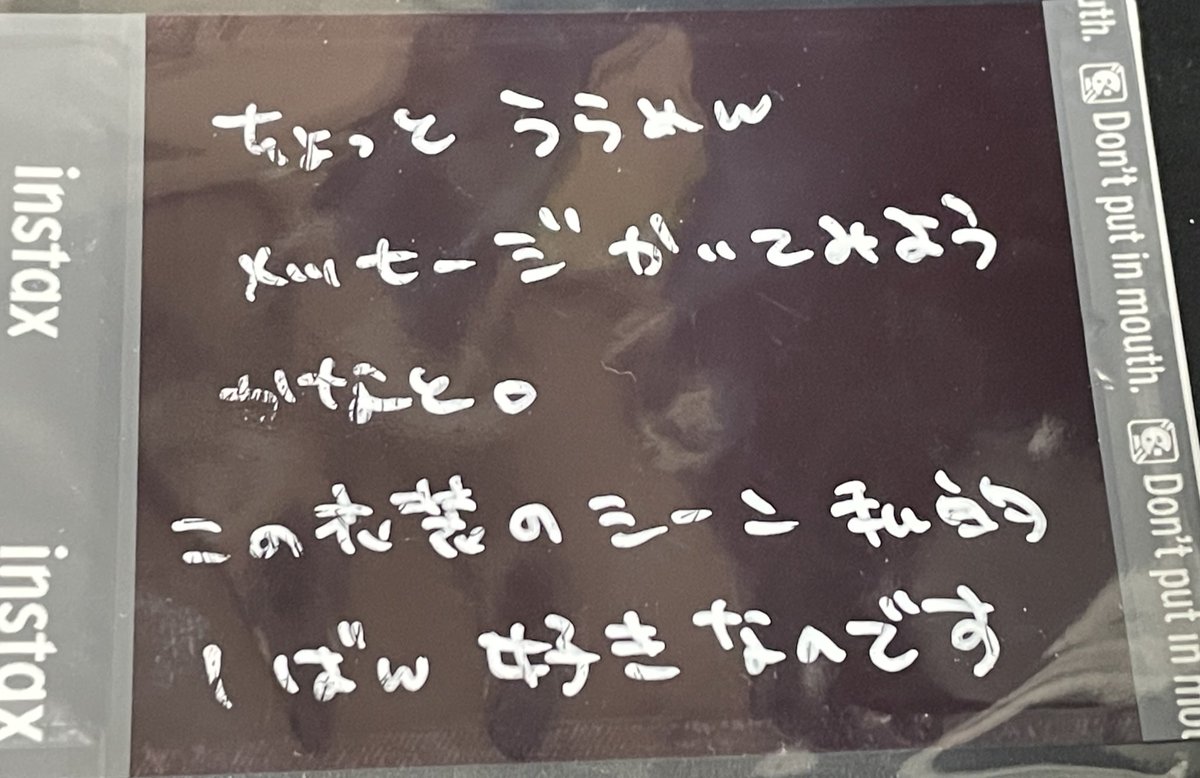 ちょっと ううめん
メッセージ かいてみよう
かなと。
この衣装のシーン 私的
1ばん 好きなんです
instax
instax
uth.
Don't put in mouth.
Don't put in mou